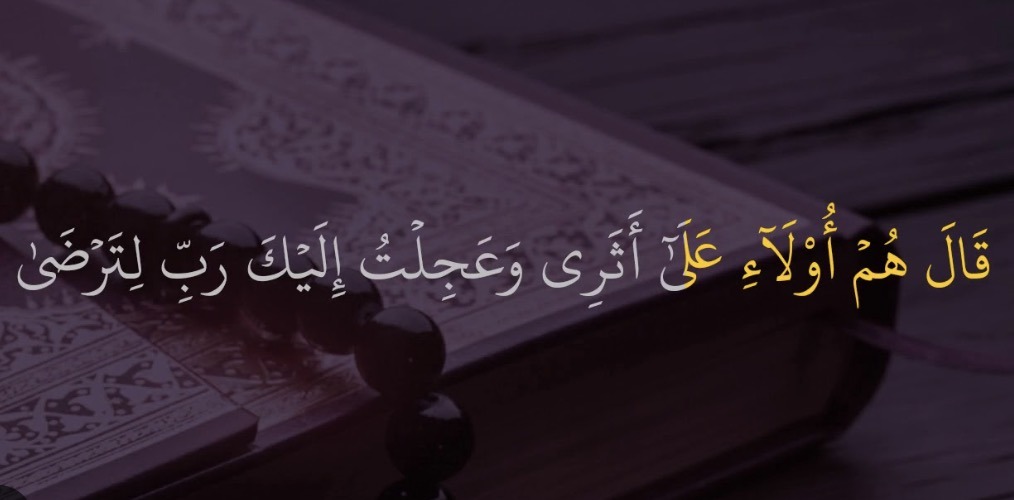 قَالَ هُمْ أُوْلَآءِ عَلَىٰٓ أَثَرِى وَعَجِلْتُ إِلَيْكَ رَبِّ لِتَرْضَىٰ